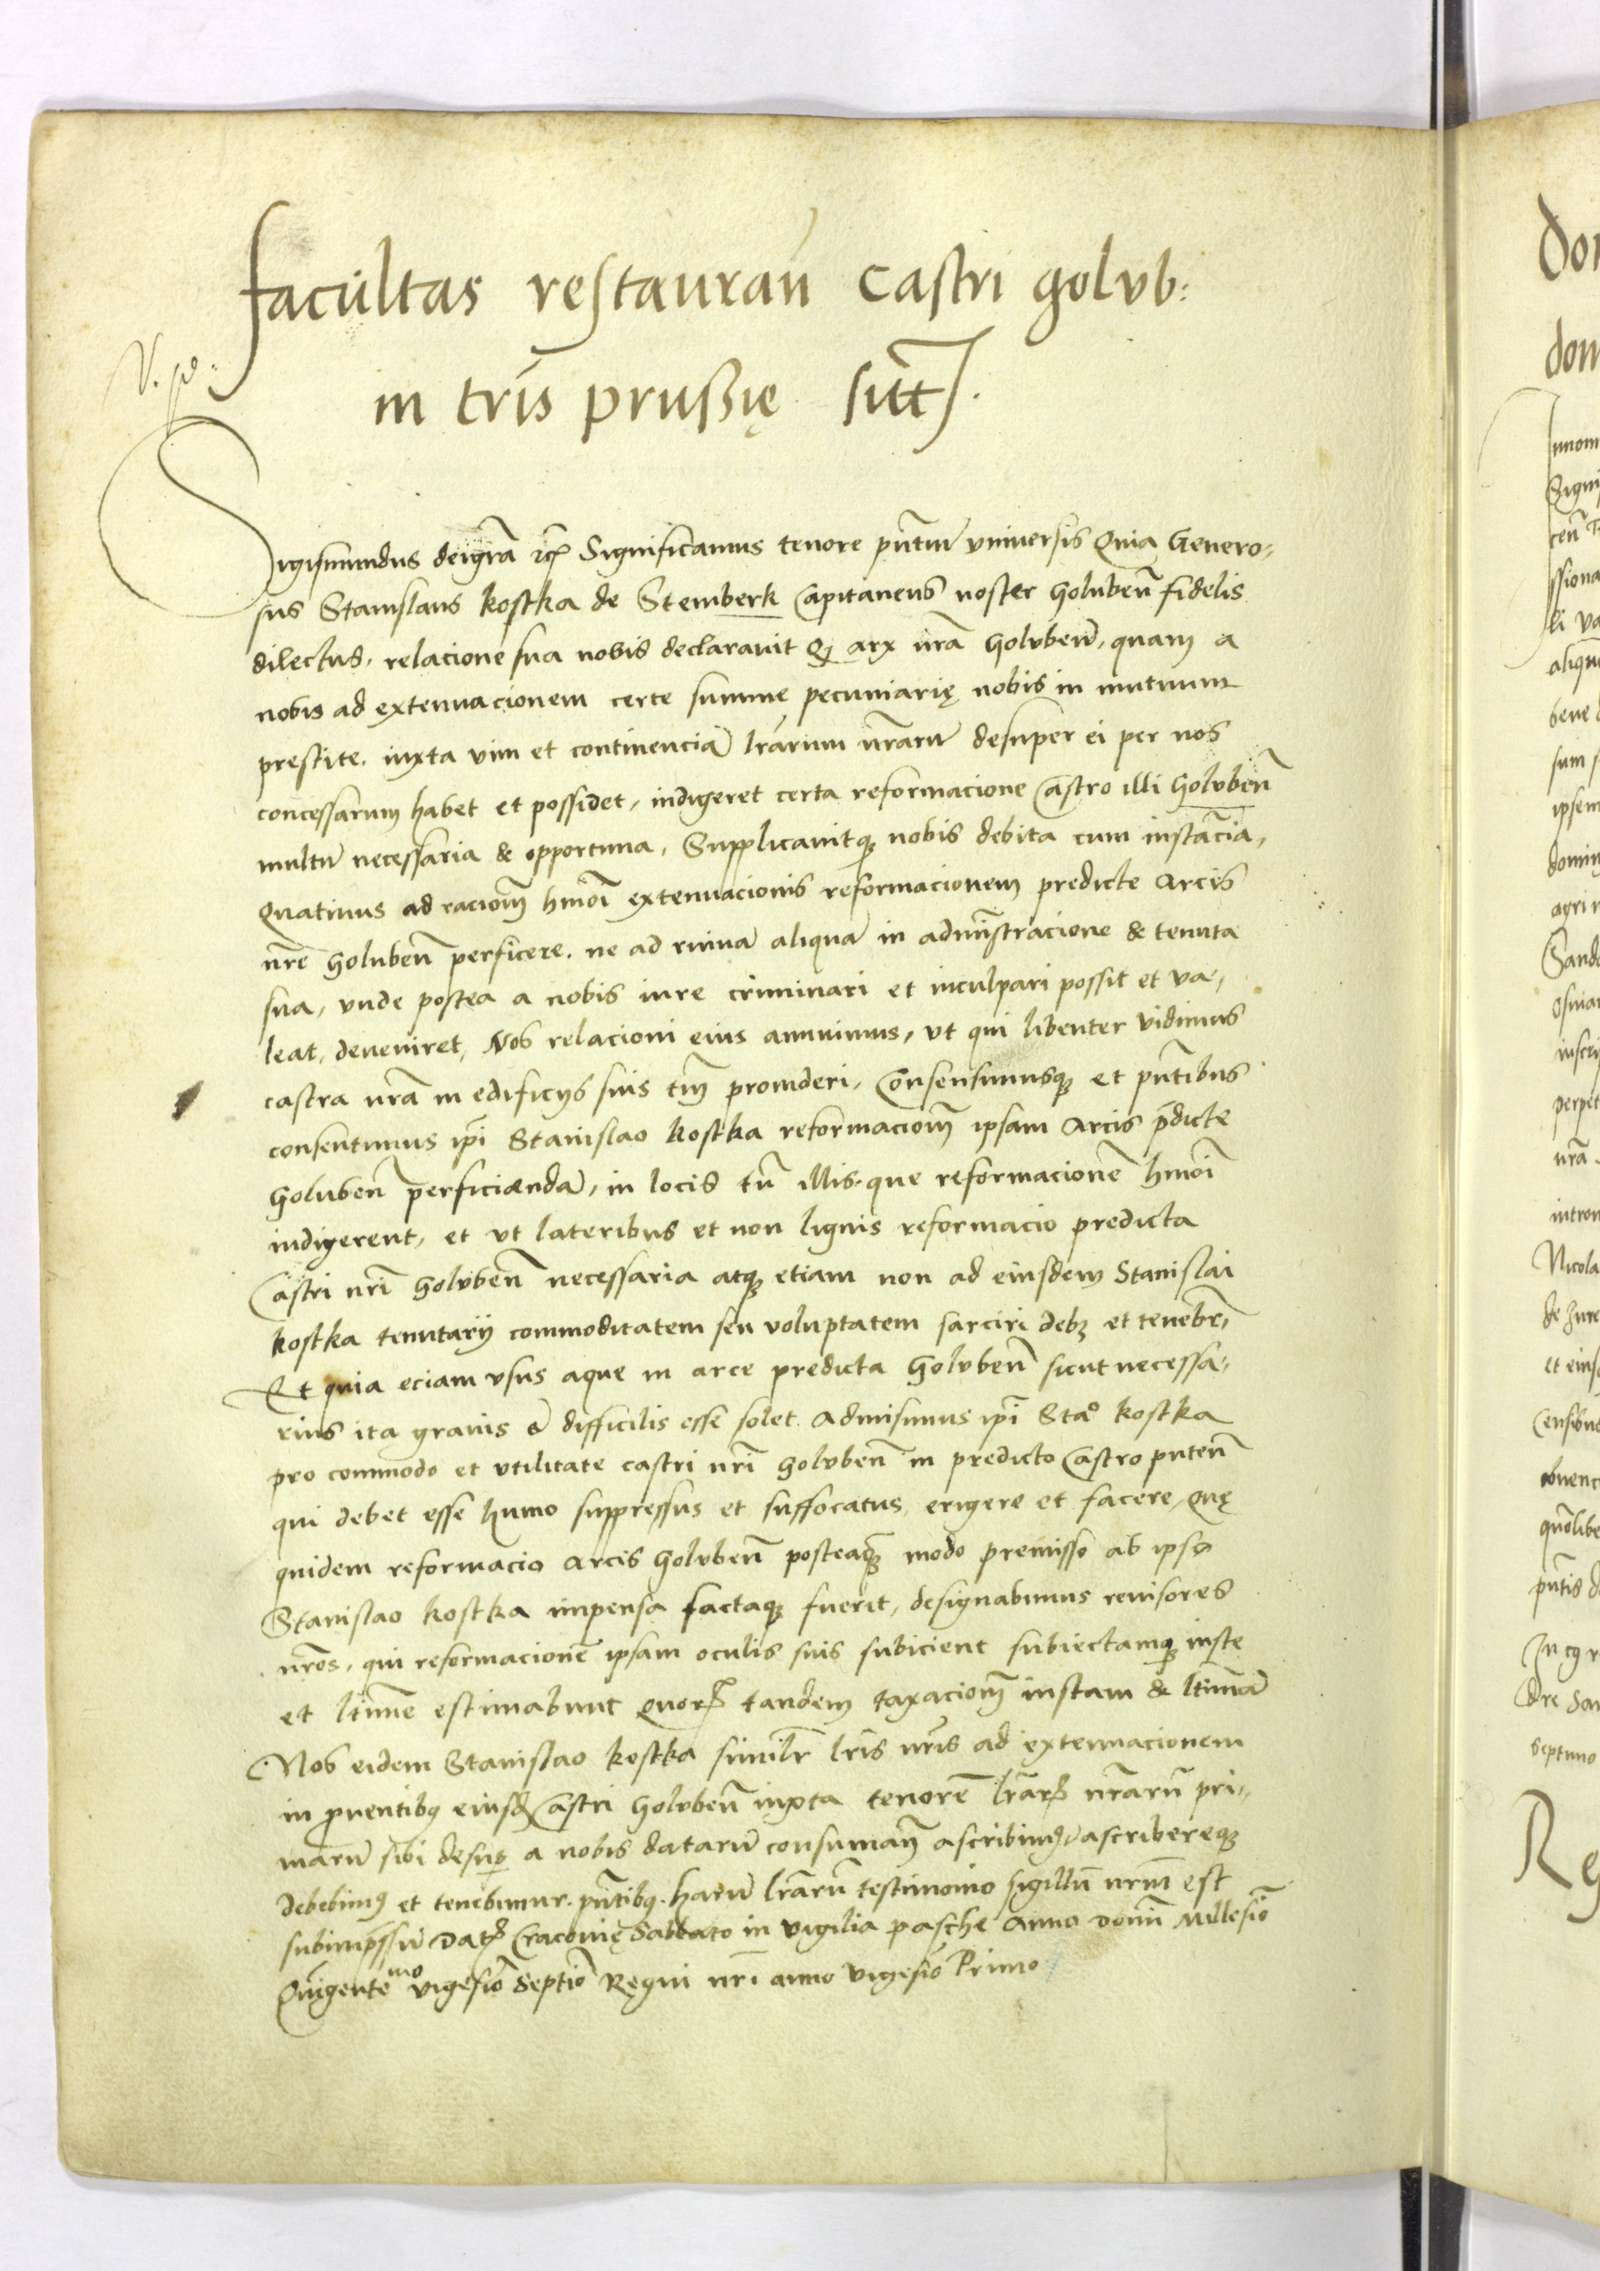 facultas restauran̄ Castri golvb:
in tr̄is prussię sitt̄
V. p̄o.
Sigismundus dei gr̄a rc̄ Significamus tenore pn̄tiū vniuersis Quia Genero-
sus Stanislaus kostka de Stemberk Capitaneus noster Golubeñ fidelis
dilectus, relacione sua nobis declarauit Q arx nr̄a Golvbeñ, quam a
nobis ad extenuacionem certe summe pecuniarię nobis in mutuum
prestite. iuxta vim et continenciā lr̄arum nr̄arū desuper ei per nos
concessarum habet et possidet, indigeret certa reformacione Castro illi Golvbeñ
multū necessaria & opportuna, Supplicauitq₃ nobis debita cum instācia,
Quatinus ad racionē hmōi extenuacionis reformacionem predicte Arcis
nr̄e Golubeñ perficere. ne ad ruinā aliquā in administracione & tenuta
sua, vnde postea a nobis iure criminari et inculpari possit et va-
leat, deueniret, Nos relacioni eius annuimus, vt qui libenter vidimus
castra nr̄a in edificijs suis tm̄ prouideri, Consensimusq₃ et pn̄tibus
consentimus ip̄i Stanislao kostka reformacionē ipsam Arcis p̄dicte
Golubeñ perficiendā, in locis tn̄ illis. que reformacionē hmōi
indigerent, et vt lateribus et non lignis reformacio predicta
Castri nr̄i Golvbeñ necessaria atq₃ etiam non ad eiusdem Stanislai
kostka tenutarij commoditatem seu voluptatem sarciri deb₃ et teneb̄r,
Et quia eciam vsus aque in arce predicta Golvbeñ sicut necessa-
rius ita grauis & difficilis esse solet. Admisimus ip̄i Sta° kostka
pro commodo et vtilitate castri nr̄i Golvbeñ in predicto Castro puteū
qui debet esse humo suppressus et suffocatus, erigere et facere, Quę
quidem reformacio Arcis Golvbeñ posteaq₃ modo premisso ab ipso
Stanislao kostka impensa factaq₃ fuerit, designabimus reuisores
nr̄os, qui reformacionē ipsam oculis suis subicient subiectamq₃ iuste
et ltīme estimabunt Quorꝝ tandem taxacionē iustam & ltīmā
Nos eidem Stanislao kostka simil̄r lr̄is nr̄is ad extenuacionem
in prouentibꝰ eiusd̄ Castri Golvbeñ iuxta tenorē lr̄arꝝ nr̄arū pri-
marū sibi desuꝑ a nobis datarū consumañ ascribimꝰ, ascribereq₃
debebimꝰ et tenebimur. pn̄tibꝰ. harū lr̄arū testimonio sigillū nr̄m est
subimp̄ssū Datꝝ Cracouię Sabbato in vigilia pasche Anno Domī Millesiō
Quīgentēmo vigesiō Septiō Regni nr̄i anno vigesiō Primo